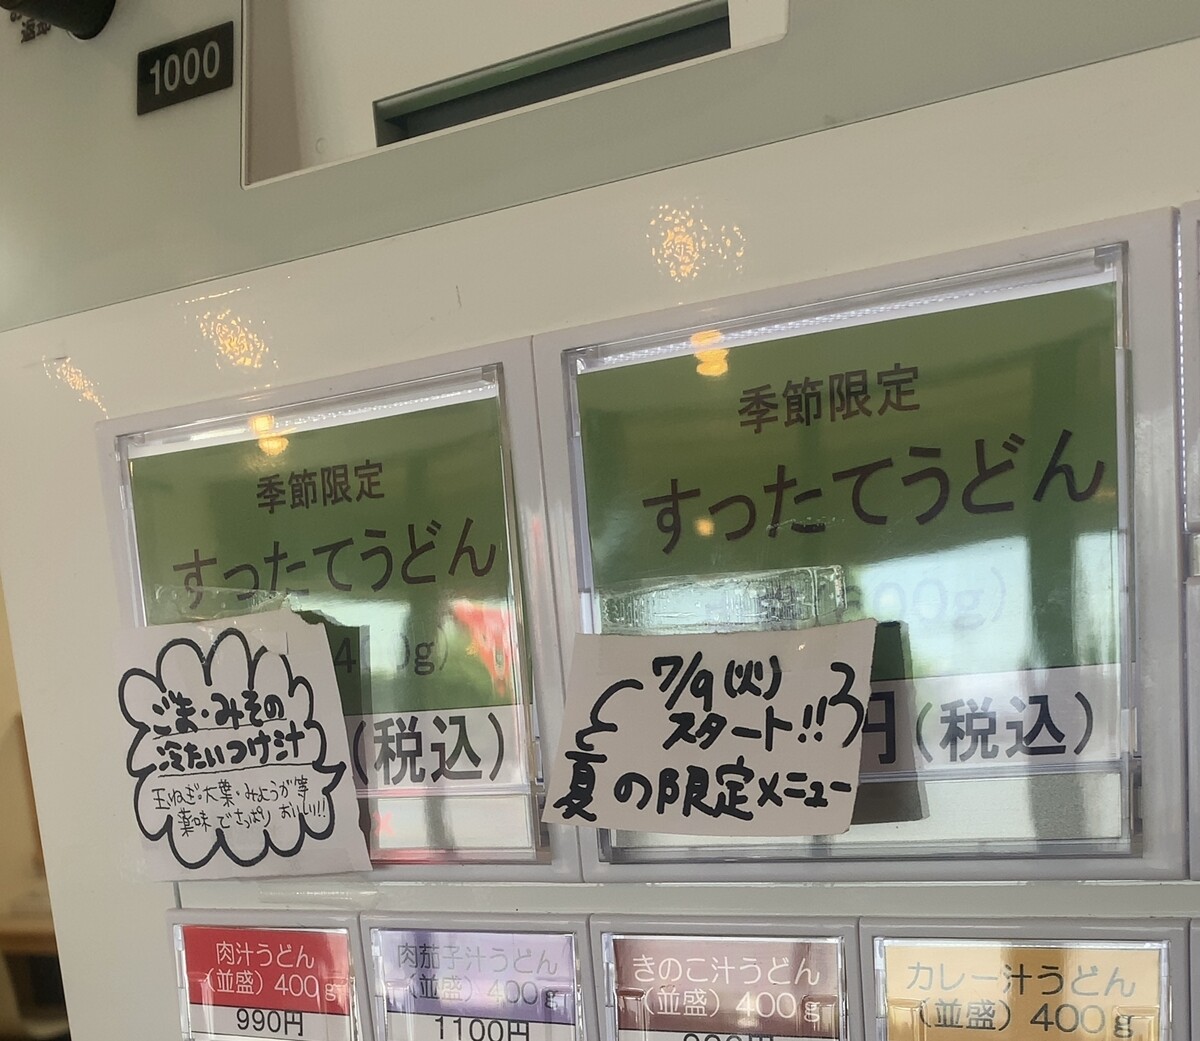 1000
季節限定
すったてうどん
400g)
(税込)
ごま・みその
冷たいつけ汁
玉ねぎ・大葉・みょうが等
薬味でさっぱりおいしい!!
季節限定
すったてうどん
00g)
円(税込)
7/9(火)
スタート!!
夏の限定メニュー
肉汁うどん
(並盛)400g
990円
肉茄子汁うどん
(並盛)400g
1100円
きのこ汁うどん
(並盛)400g
カレー汁うどん
(並盛)400g